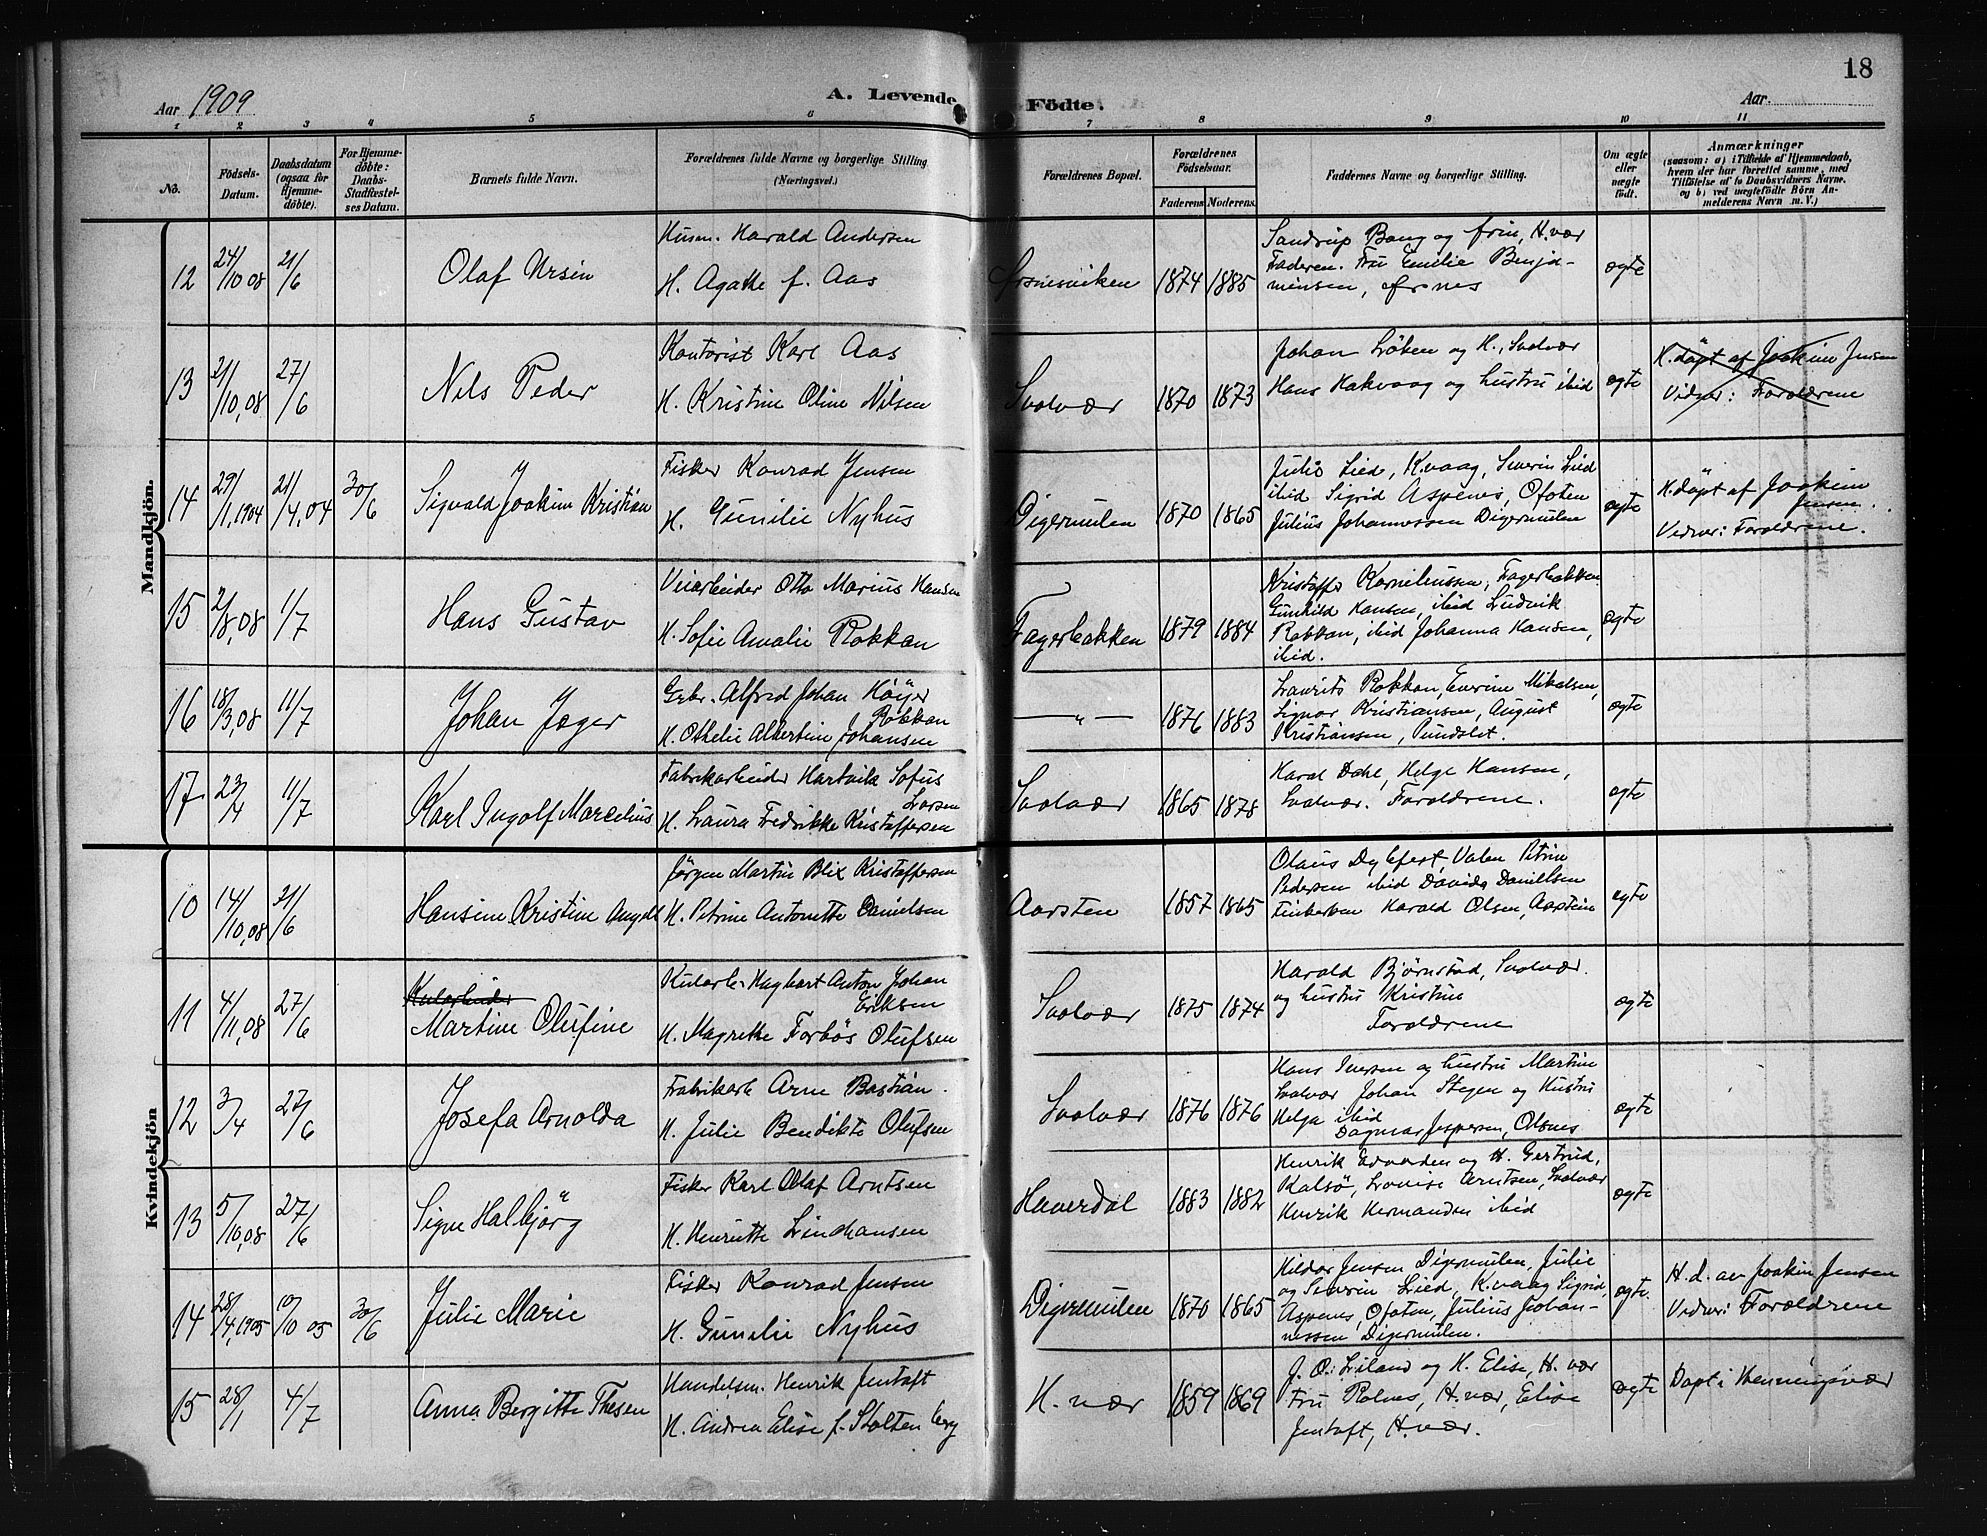 18
Aar 1909
A. Levende Födte.
Aar.
1 2 3 4 5 6 7 8 9 10 11
No.
Födsels-
Datum.
Daabsdatum
(ogsaa for
Hjemme-
döbte).
For Hjemme-
döbte:
Daabs-
Stadfæstel-
ses Datum.
Barnets fulde Navn.
Forældrenes fulde Navne og borgerlige Stilling
(Næringsvei.)
Forældrenes Bopæl.
Forældrenes
Födselsaar.
Faderens Moderens
Faddernes Navne og borgerlige Stilling.
Om ægte
eller
uægte
født.
Anmærkninger
(saasom: a) i Tilfælde af Hjemmedaab,
hvem der har forrettet samme, med
Tilföielse af to Daabsvidners Navne.
og b) ved uægtefödte Börn An-
melderens Navn m. V.)
Mandkjön.
12 24/10 08 21/6
Olaf Ursin
Husm. Harald Andersen
H. Agathe f. Aas
1874 1885
Faderen. Fru Emilie Benja-
minsen,
ægte
13 21/10,08 27/6
Nils Peder
Kontorist Karl Aas
H. Kristine Oline Nilsen
Svolvær
1870 1873
Johan Løken og H., Svolvær
Hans Hakvaag og hustru ibid
ægte
H. döpt af Joakim Jensen
Vidner: Forældrene
14 29/1,1904 21/4,04 30/6
Sigvald Joakim Kristian
Fisker Konrad Jensen
H. Gunilie Nyhus
Digermulen
1870 1865
Julie Lied, Kvaag, Severin Lied
ibid Sigrid Aspenes, Ofoten
Julius Johannessen Digermulen
ægte
H. döpt af Joakim
Jensen.
Vidner: Forældrene.
15 2/8,08 1/7
Hans Gustav
Veiarbeider Otto Marius Hansen
H. Sofie Amalie Rokkan
Fagerbakken
1879 1884
Kristoffer Korneliussen, Fagerbakken
Gunhild Hansen, ibid Ludvik
Rokkan, ibid Johanna Hansen,
ibid.
ægte
16 18/3,08 11/7
Johan Jæger
Grbr. Alfred Johan Höijer
Rokkan
H. Othelie Albertine Johansen
— " —
1876 1883
Laurits Rokkan, Everine Mikalsen,
Signar Kristiansen, August
Kristiansen, Pundslet.
ægte
17 23/4 11/7
Karl Ingolf Marcelius
Fabrikarbeider Hartvik Sofus
Larsen
H. Laura Fredrikke Kristoffersen
Svolvær
1865 1878
Karal Dahl, Helge Hansen,
Svolvær. Forældrene.
ægte
Kvindekjön
10 14/10,08 21/6
Hansine Kristine Angell
Jörgen Martin Blix Kristoffersen
H. Petrine Antonette Danielsen
Aarsten
1857 1865
Pedersen ibid Davida Daniellsen
Harald Olsen,
ægte
11 4/11,08 27/6
Kularbeider
Martine Olufine
Kularb. Hagbart Anton Johan
Eriksen
H. Magrethe Forbös Olufsen
Svolvær
1875 1874
Harald Bjørnstad, Svolvær.
og hustru Kristine
Forældrene
ægte
12 3/4 27/6
Josefa Arnolda
Fabrikarb Arne Bastian.
H. Julie Bendikte Olufsen
Svolvær
1876 1876
Hans Iversen og hustru Martine
Svolvær Johan Stegen og Hustru
Helga ibid
Dagmar Jespersen, Olsnes
ægte
13 5/10,08 27/6
Signe Halbjörg
Fisker Karl Olaf Arntsen
H. Henriette Lindhansen
Haverdal
1883 1882
Henrik Edvarden og H. Gertrud,
Kalsö, Lovise Arntsen, Svolvær
Henrik Hermansen ibid
ægte
14 28/4,1905 10/10 05 30/6
Julie Marie
Fisker Konrad Jensen
H. Gunilie Nyhus
Digermulen
1870 1865
Hildar Jensen Digermulen, Julie
og Severin Lied, Kvaag Sigrid
Aspenes, Ofoten, Julius Johan-
nessen Digermulen.
ægte.
H. d. av Joakim Jensen
Vidner: Forældrene
15 28/1 4/7
Anna Bergitte Thesen
Handelsm. Henrik Jentoft
H. Andrea Elise f. Stoltenberg
H. vær
1859 1869
J. O. Liland og H. Elise, H. vær
Fru Rolnes, H. vær, Elise
Jentoft, H. vær.
ægte
Døpt i Henningsvær